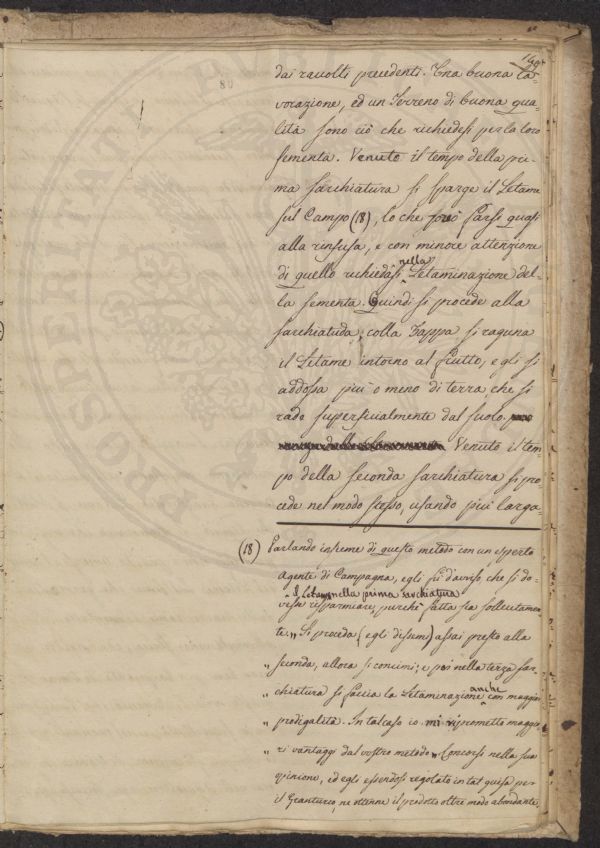 dai ravolti precedenti. Una buona la-
vorazione, ed un Terreno di buona qua-
lità sono ciò che richiedesi per la loro
sementa. Venuto il tempo della pri-
ma sarchiatura si sparge il Letame
sul Campo (18), lo che può farsi quasi
alla rinfusa, e con minore attenzione
di quello richiedasi nella Letaminazione del-
la sementa. Quindi si procede alla
sarchiatura; colla Zappa si raguna
il Letame intorno al frutto, e gli si
addossa più o meno di terra che si
rade superficialmente dal suolo.
Venuto il tem-
po della seconda sarchiatura si pro-
cede nel modo stesso, usando più larga
(18) Parlando insieme di questo metodo con un esperto
Agente di Campagna, egli fu d'avviso, che si do-
nella prima sarchiatura
vesse risparmiare, purchè fatta sia sollecitamen-
te. „ Si proceda (egli dissemi) assai presto alla
„ seconda, allora si concimi; e poi nella terza sar-
„ chiatura si faccia la Letaminazione anche con maggior
„ prodigalità. In tal caso io mi riprometto maggio-
„ ri vantaggi dal vostro metodo „ Concorsi nella sua
opinione, ed egli essendosi regolato in tal guisa per
il Granturco, ne ottenne il prodotto oltre modo abondante,